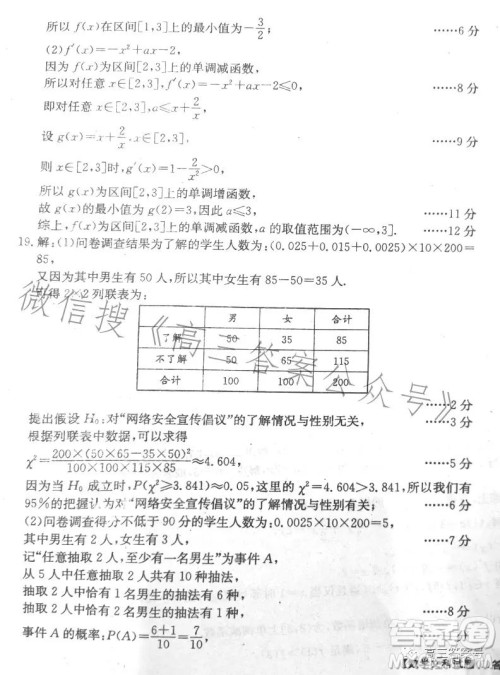 所以 f(x)在区间[1,3]上的最小值为-3/2; ……6分
(2)f′(x)=-x²+ax-2,
因为 f(x)为区间[2,3]上的单调减函数,
所以对任意 x∈[2,3],f′(x)=-x²+ax-2≤0, ……8分
即对任意 x∈[2,3],a≤x+2/x,
设 g(x)=x+2/x,x∈[2,3], ……9分
则 x∈[2,3]时,g′(x)=1-2/x²>0,
所以 g(x)为区间[2,3]上的单调增函数,
故 g(x)的最小值为 g(2)=3,因此 a≤3, ……11分
综上,f(x)为区间[2,3]上的单调减函数,a 的取值范围为(-∞,3]. ……12分
19.解:(1)问卷调查结果为了解的学生人数为:(0.025+0.015+0.0025)×10×200=
85,
又因为其中男生有 50 人,所以其中女生有 85-50=35 人.
得 2×2 列联表为:
男 女 合计
了解 50 35 85
不了解 50 65 115
合计 100 100 200
……2分
提出假设 H₀:对“网络安全宣传倡议”的了解情况与性别无关, ……3分
根据列联表中数据,可以求得
χ²=200×(50×65-35×50)²/100×100×115×85≈4.604, ……5分
因为当 H₀ 成立时,P(χ²≥3.841)≈0.05,这里的 χ²=4.604>3.841,所以我们有
95%的把握认为对“网络安全宣传倡议”的了解情况与性别有关; ……6分
(2)问卷调查得分不低于 90 分的学生人数为:0.0025×10×200=5,
其中男生有 2 人,女生有 3 人, ……7分
记“任意抽取 2 人,至少有一名男生”为事件 A
从 5 人中任意抽取 2 人共有 10 种抽法,
抽取 2 人中恰有 1 名男生的抽法有 6 种,
抽取 2 人中恰有 2 名男生的抽法有 1 种, ……8分
事件 A 的概率:P(A)=6+1/10=7/10,
微信搜《高三答案公众号》